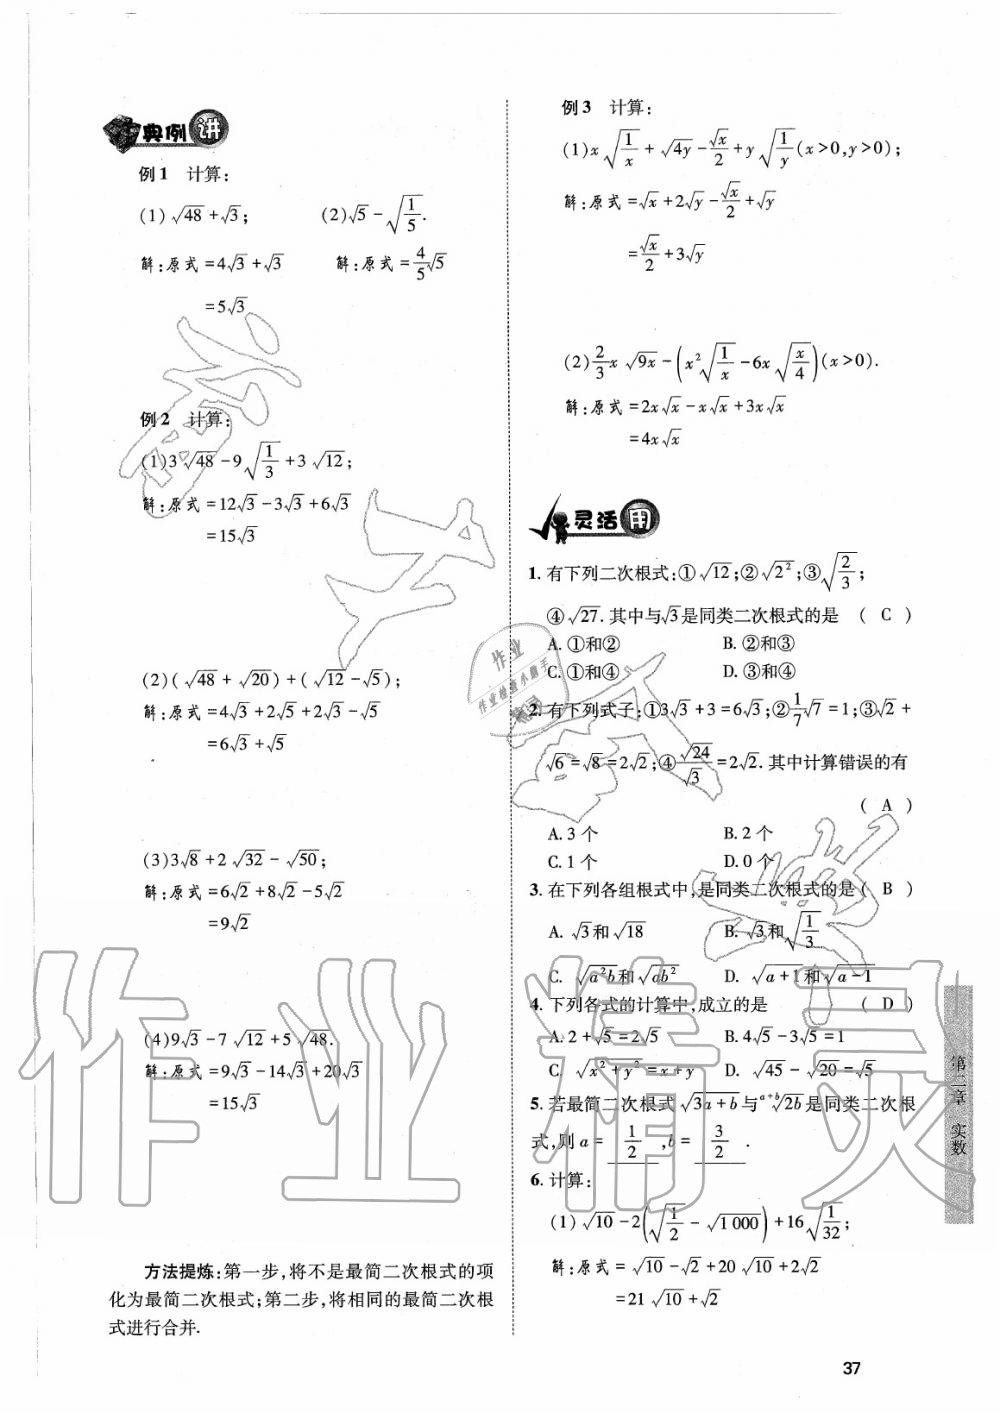 典例讲
例1 计算:
(1)√48+√3; (2)√5-√(1/5).
解:原式=4√3+√3 解:原式=4/5√5
=5√3
例2 计算:
(1)3√48-9√(1/3)+3√12;
解:原式=12√3-3√3+6√3
=15√3
(2)(√48+√20)+(√12-√5);
解:原式=4√3+2√5+2√3-√5
=6√3+√5
(3)3√8+2√32-√50;
解:原式=6√2+8√2-5√2
=9√2
(4)9√3-7√12+5√48.
解:原式=9√3-14√3+20√3
=15√3
方法提炼:第一步,将不是最简二次根式的项
化为最简二次根式;第二步,将相同的最简二次根
式进行合并.
例3 计算:
(1)x√(1/x)+√4y-√x/2+y√(1/y)(x>0,y>0);
解:原式=√x+2√y-√x/2+√y
=√x/2+3√y
(2)2/3x√9x-(x²√(1/x)-6x√(x/4))(x>0).
解:原式=2x√x-x√x+3x√x
=4x√x
灵活用
1. 有下列二次根式:①√12;②√2²;③√(2/3);
④√27.其中与√3是同类二次根式的是 ( C )
A. ①和② B. ②和③
C. ①和④ D. ③和④
2. 有下列式子:①3√3+3=6√3;②1/7√7=1;③√2+
√6=√8=2√2;④√24/√3=2√2.其中计算错误的有
( A )
A. 3个 B. 2个
C. 1个 D. 0个
3. 在下列各组根式中,是同类二次根式的是( B )
A. √3和√18 B. √3和√(1/3)
C. √a²b和√ab² D. √a+1和√a-1
4. 下列各式的计算中,成立的是 ( D )
A. 2+√5=2√5 B. 4√5-3√5=1
C. √x²+y²=x+y D. √45-√20=√5
5. 若最简二次根式√3a+b与ᵃ⁺ᵇ√2b是同类二次根
式,则a= 1/2 ,b= 3/2 .
6. 计算:
(1)√10-2(√(1/2)-√1000)+16√(1/32);
解:原式=√10-√2+20√10+2√2
=21√10+√2
第二章 实数
37
作业
作业检查小助手
作业精灵